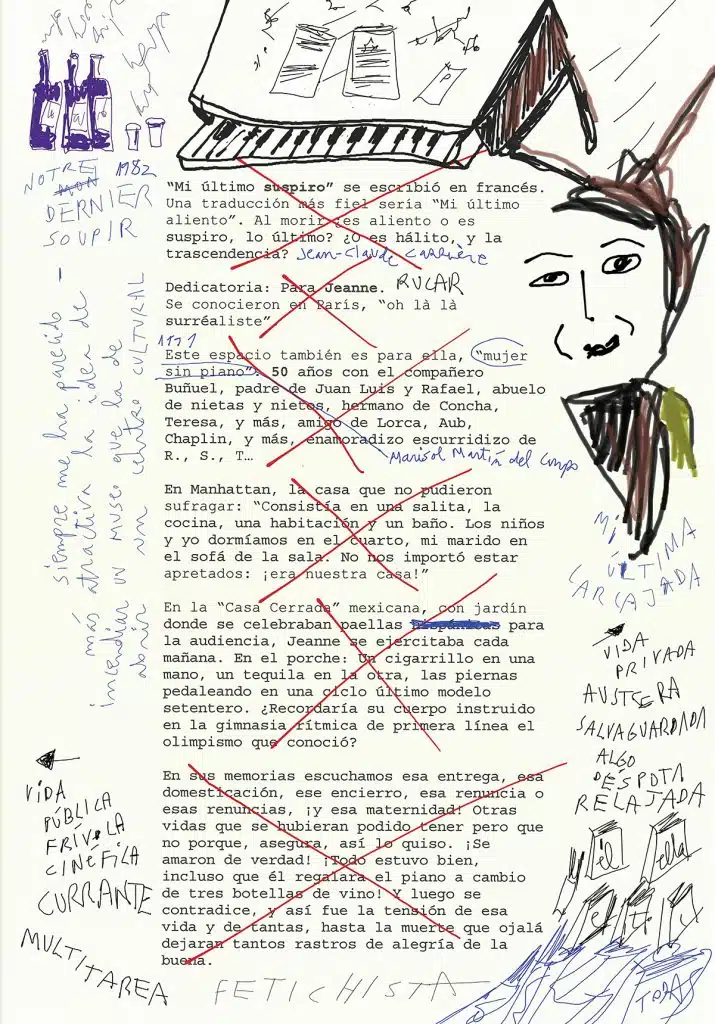 NOTRE
MON 1982
DERNIER
SOUPIR
“Mi último suspiro” se escribió en francés.
Una traducción más fiel sería “Mi último
aliento”. Al morir ¿es aliento o es
suspiro, lo último? ¿O es hálito, y la
trascendencia? Jean-Claude Carrière
Dedicatoria: Para Jeanne. RUCAR
Se conocieron en París, “oh là là
surréaliste”
Este espacio también es para ella, “mujer
sin piano”. 50 años con el compañero
Buñuel, padre de Juan Luis y Rafael, abuelo
de nietas y nietos, hermano de Concha,
Teresa, y más, amigo de Lorca, Aub,
Chaplin, y más, enamoradizo escurridizo de
R., S., T…
Marisol Martín del Campo
En Manhattan, la casa que no pudieron
sufragar: “Consistía en una salita, la
cocina, una habitación y un baño. Los niños
y yo dormíamos en el cuarto, mi marido en
el sofá de la sala. No nos importó estar
apretados: ¡era nuestra casa!”
En la “Casa Cerrada” mexicana, con jardín
donde se celebraban paellas hispánicas para
la audiencia, Jeanne se ejercitaba cada
mañana. En el porche: Un cigarrillo en una
mano, un tequila en la otra, las piernas
pedaleando en una ciclo último modelo
setentero. ¿Recordaría su cuerpo instruido
en la gimnasia rítmica de primera línea el
olimpismo que conoció?
En sus memorias escuchamos esa entrega, esa
domesticación, ese encierro, esa renuncia o
esas renuncias, ¡y esa maternidad! Otras
vidas que se hubieran podido tener pero que
no porque, asegura, así lo quiso. ¡Se
amaron de verdad! ¡Todo estuvo bien,
incluso que él regalara el piano a cambio
de tres botellas de vino! Y luego se
contradice, y así fue la tensión de esa
vida y de tantas, hasta la muerte que ojalá
dejaran tantos rastros de alegría de la
buena.
siempre me ha parecido -
más atractiva la idea de
incendiar un museo que la de
abrir un centro CULTURAL
VIDA
PÚBLICA
FRÍVOLA
CINÉFILA
CURRANTE
MULTITAREA
FETICHISTA
MI
ÚLTIMA
CARCAJADA
VIDA
PRIVADA
AUSTERA
SALVAGUARDADA
ALGO
DÉSPOTA
RELAJADA
él
ella
TODAS